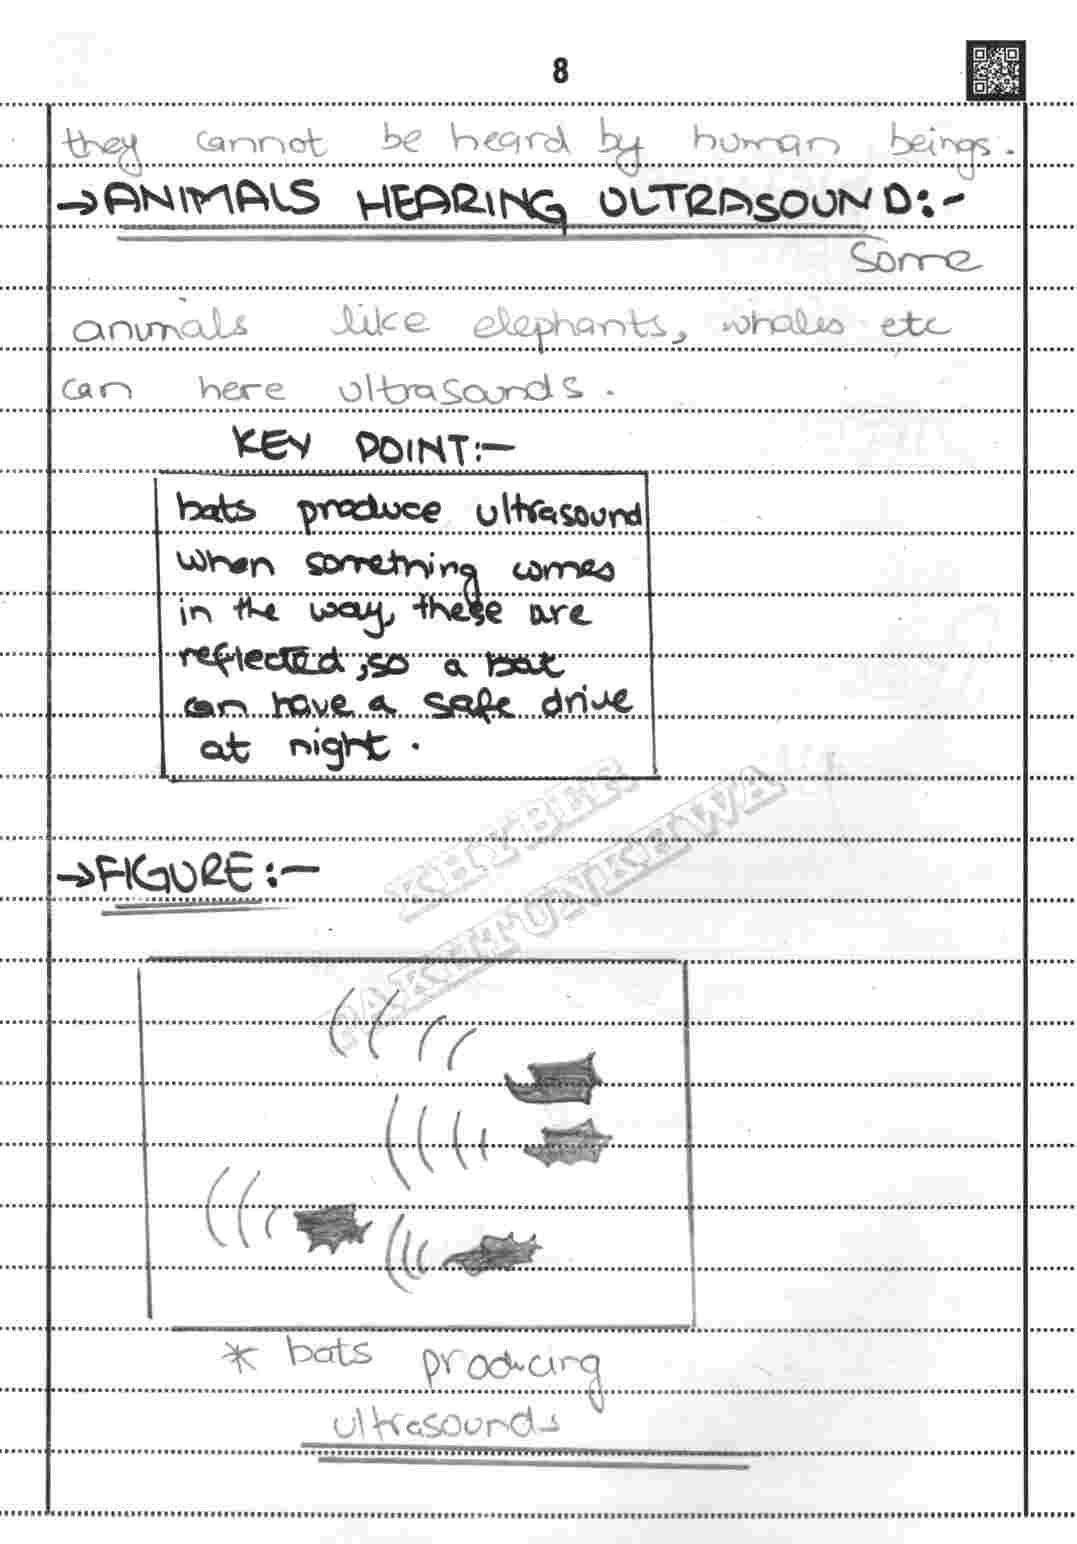 8
they cannot be heard by human beings.
→ANIMALS HEARING ULTRASOUND:-
Some
animals like elephants, whales etc
can here ultrasounds.
KEY POINT:-
bats produce ultrasound
when something comes
in the way, these are
reflected, so a bat
can have a safe drive
at night.
KHYBER
PAKHTUNKHWA
→FIGURE:-
* bats producing
ultrasounds